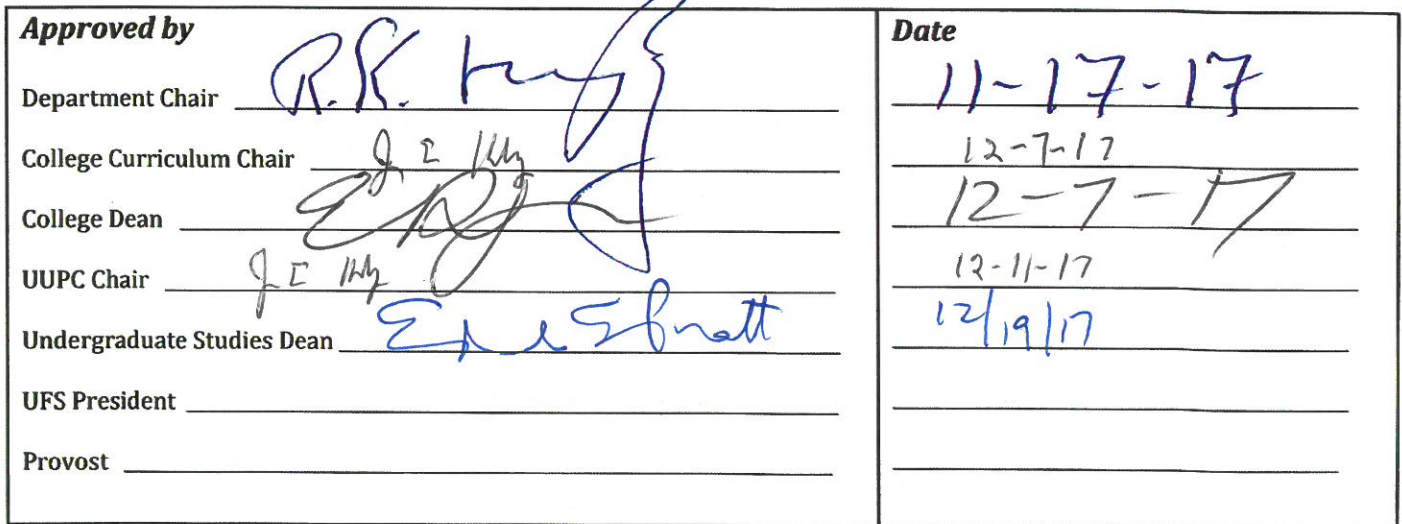 Approved by Date
Department Chair R.K. 11-17-17
College Curriculum Chair J E 12-7-17
College Dean 12-7-17
UUPC Chair J E 12-11-17
Undergraduate Studies Dean 12/19/17
UFS President
Provost